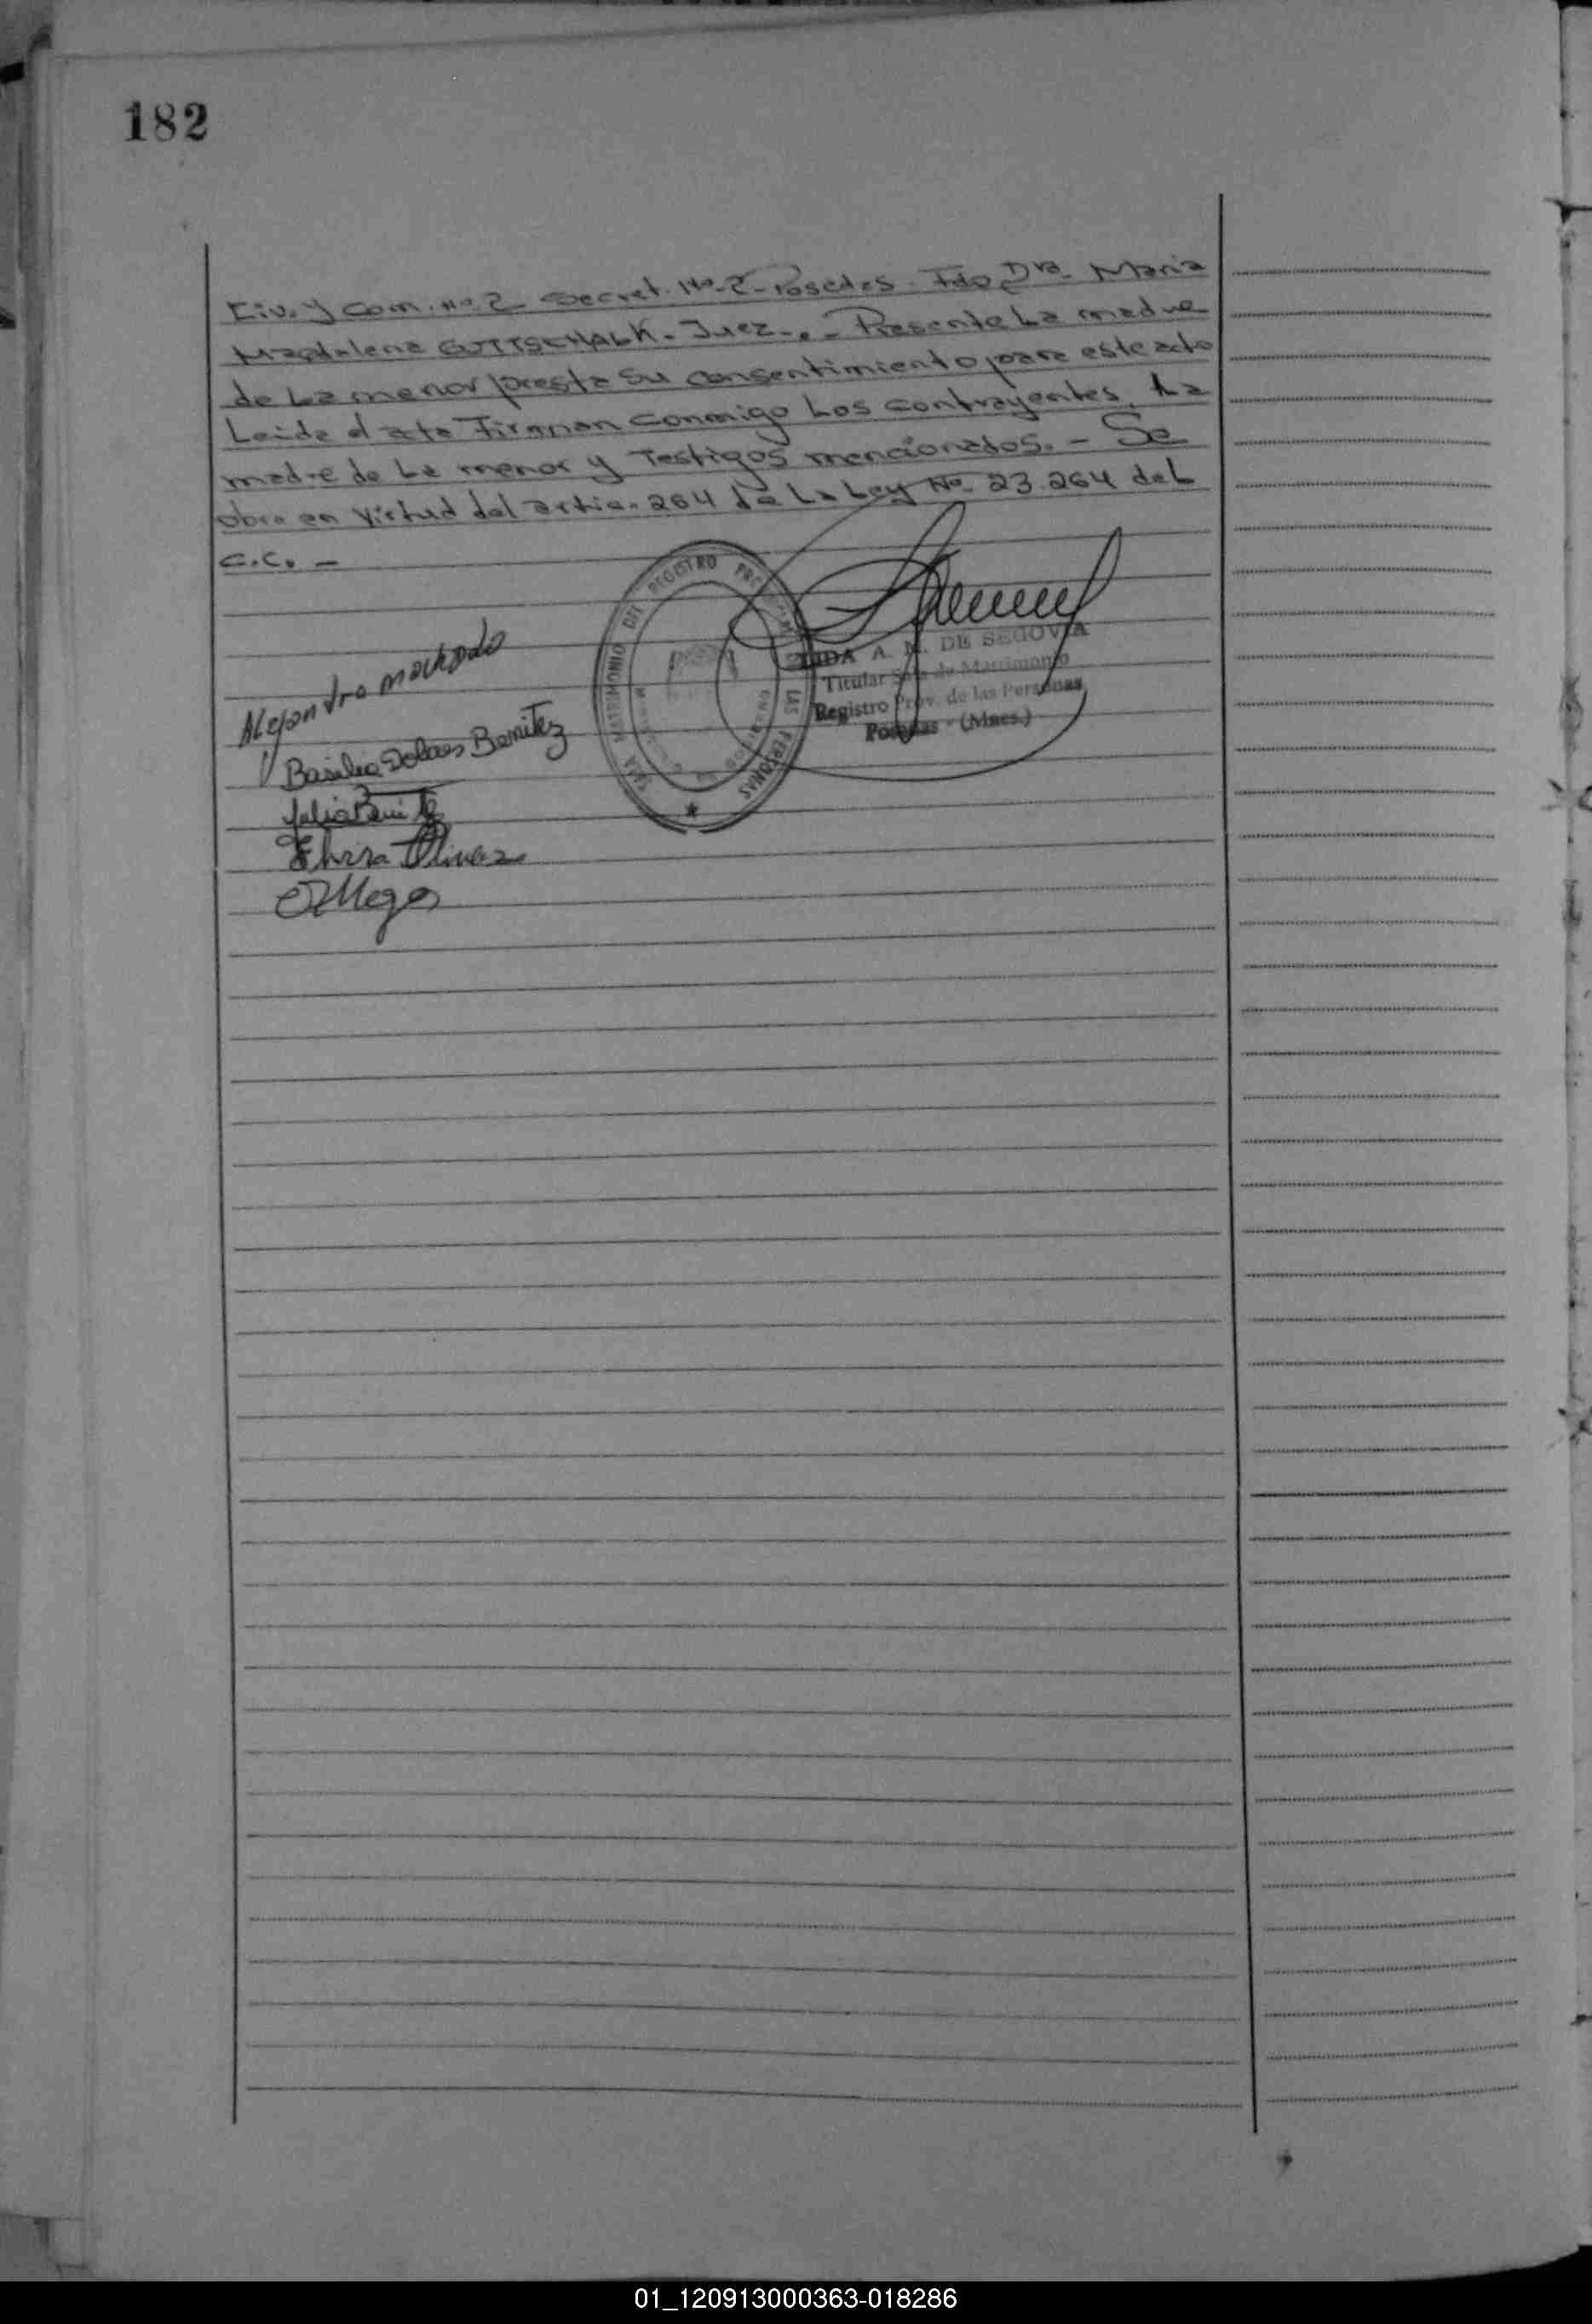 182
Civ. y Com. Nº 2 Secret. Nº 2 - Posadas. Fdo Dra. Maria
Magdalena GOTTSCHALK. Juez-.- Presente La madre
de La menor presta su consentimiento para este acto
Leida el acta Firman conmigo Los contrayentes, La
madre de La menor y Testigos mencionados. - Se
obra en virtud del artic. 264 de La Ley Nº 23.264 del
C.C. -
Alejandro machado
Basilia Dolores Benitez
Julia Benitez
SALA MATRIMONIO DEL REGISTRO PROVINCIAL DE LAS PERSONAS
A. M. DE SEGOVIA
Titular Sala de Matrimonio
Registro Prov. de las Personas
Posadas - (Mnes.)
01_120913000363-018286